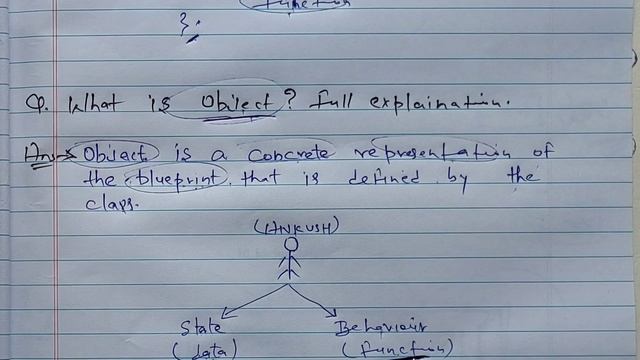 function
};
Q. What is Object? full explaination.
Ans→ Object is a concrete representation of
the blueprint that is defined by the
class.
(ANKUSH)
State
Behaviour
(data)
(function)